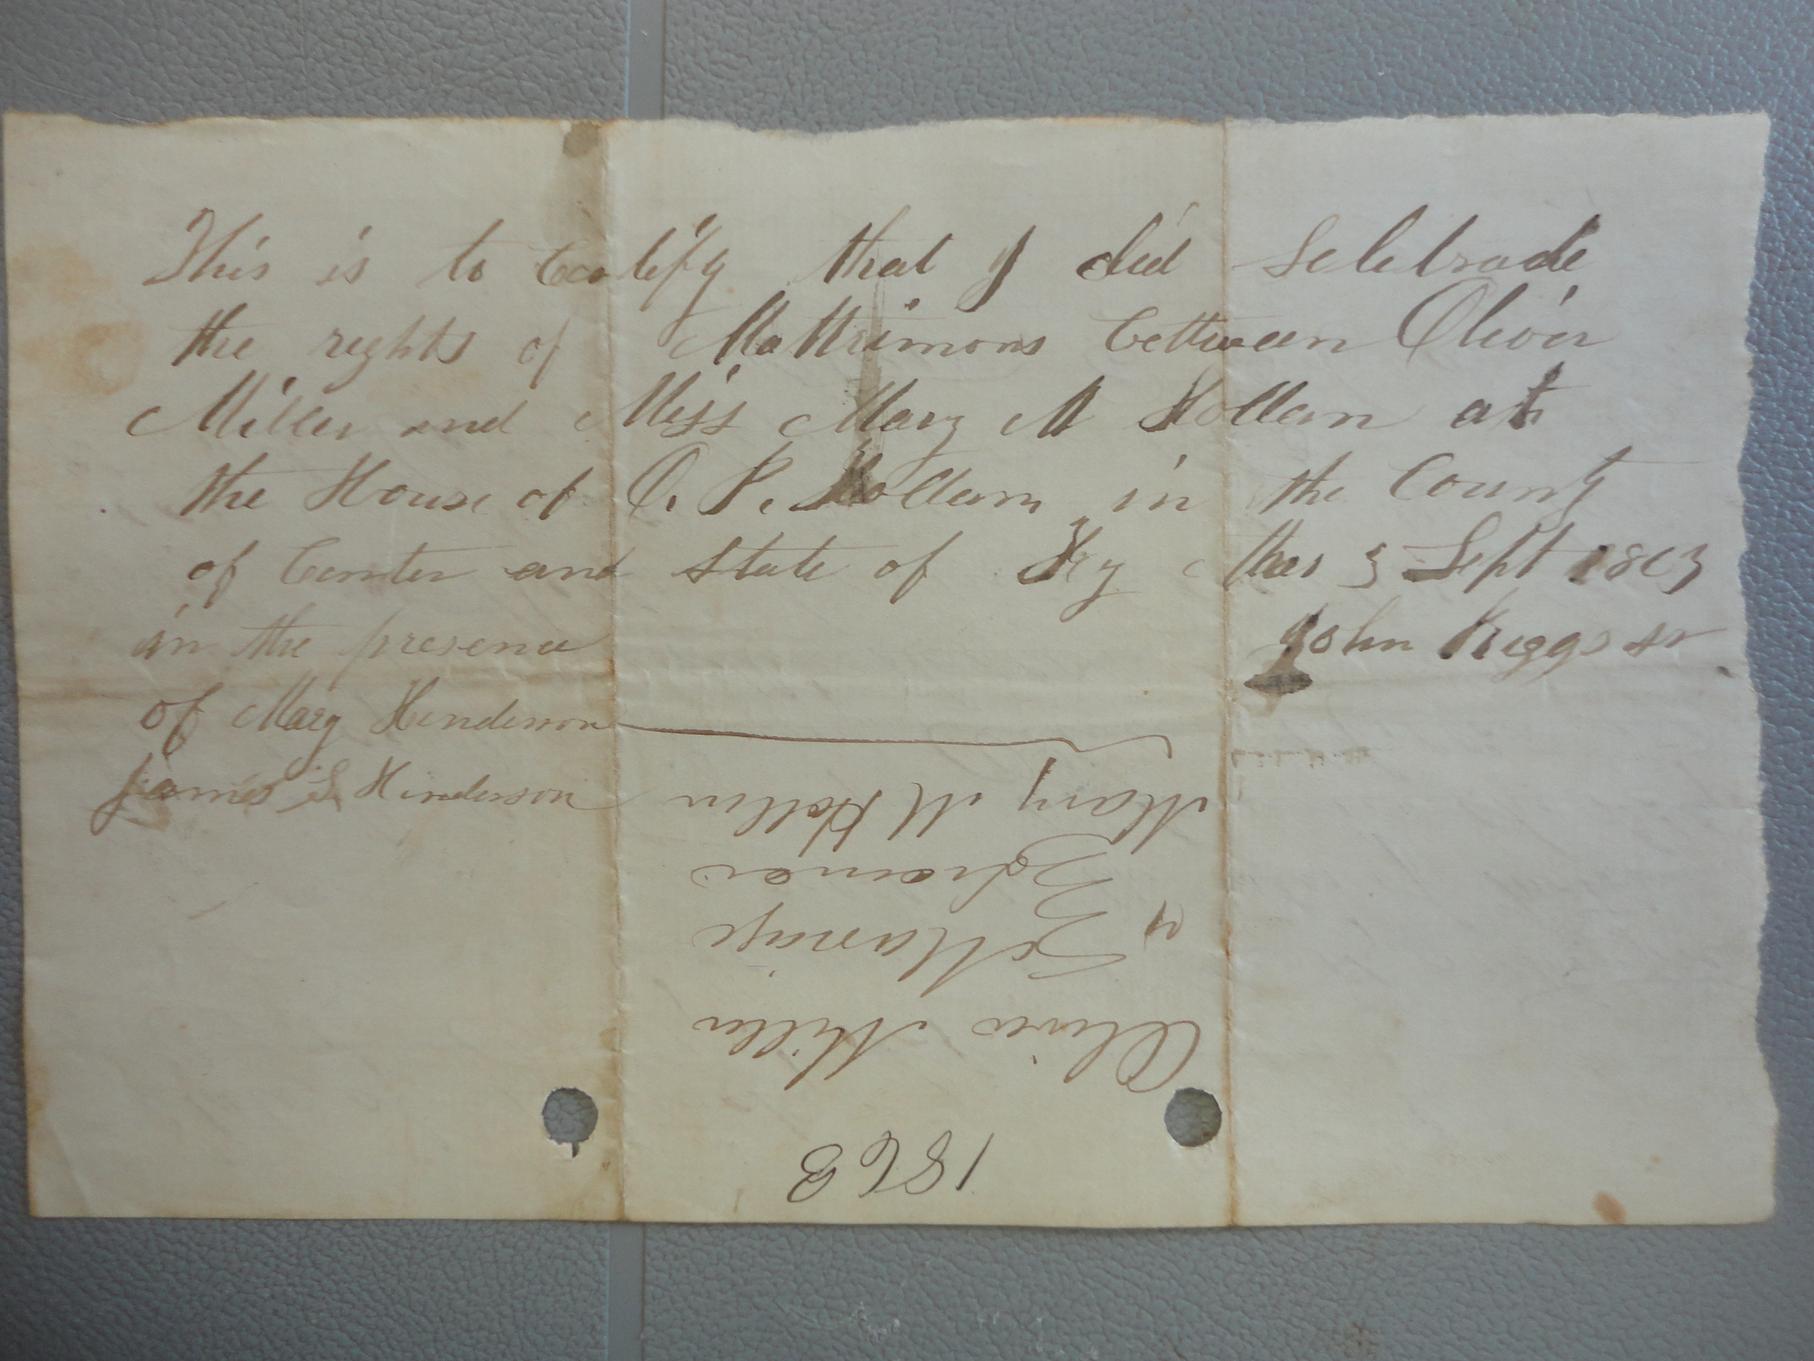 This is to Certify that I did Selebrade
the rights of Mattrimons bettween Oliver
Miller and Miss Mary M Hollan at
the House of O. P. Hollan in the County
of Carter and State of Ky this 3 Sept 1863
John Riggs sr
in the presence
of Mary Henderson
James S Henderson
Mary M Hollin
To Marriage
Oliver Miller
1863